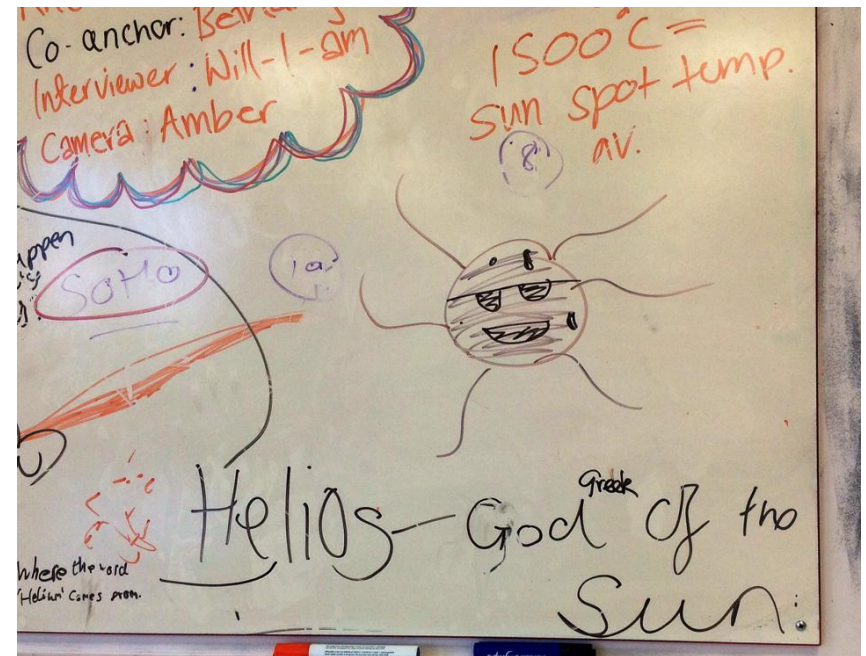 Co-anchor:
Interviewer: Will-I-am
Camera: Amber
1500°C =
sun spot temp.
av.
8
SOHO
1a
Helios - Greek God of the
Sun
Where the word
'Helium' comes from.